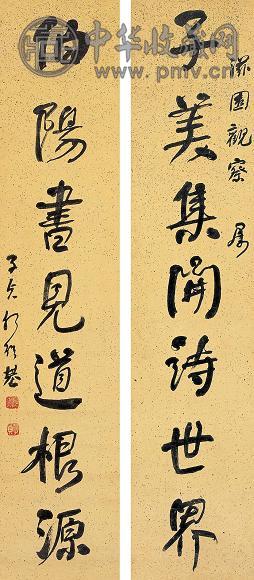 中华收藏网
www.pmv.cn
園觀察 屬
子美集開詩世界
伯陽書見道根源
子貞何紹基